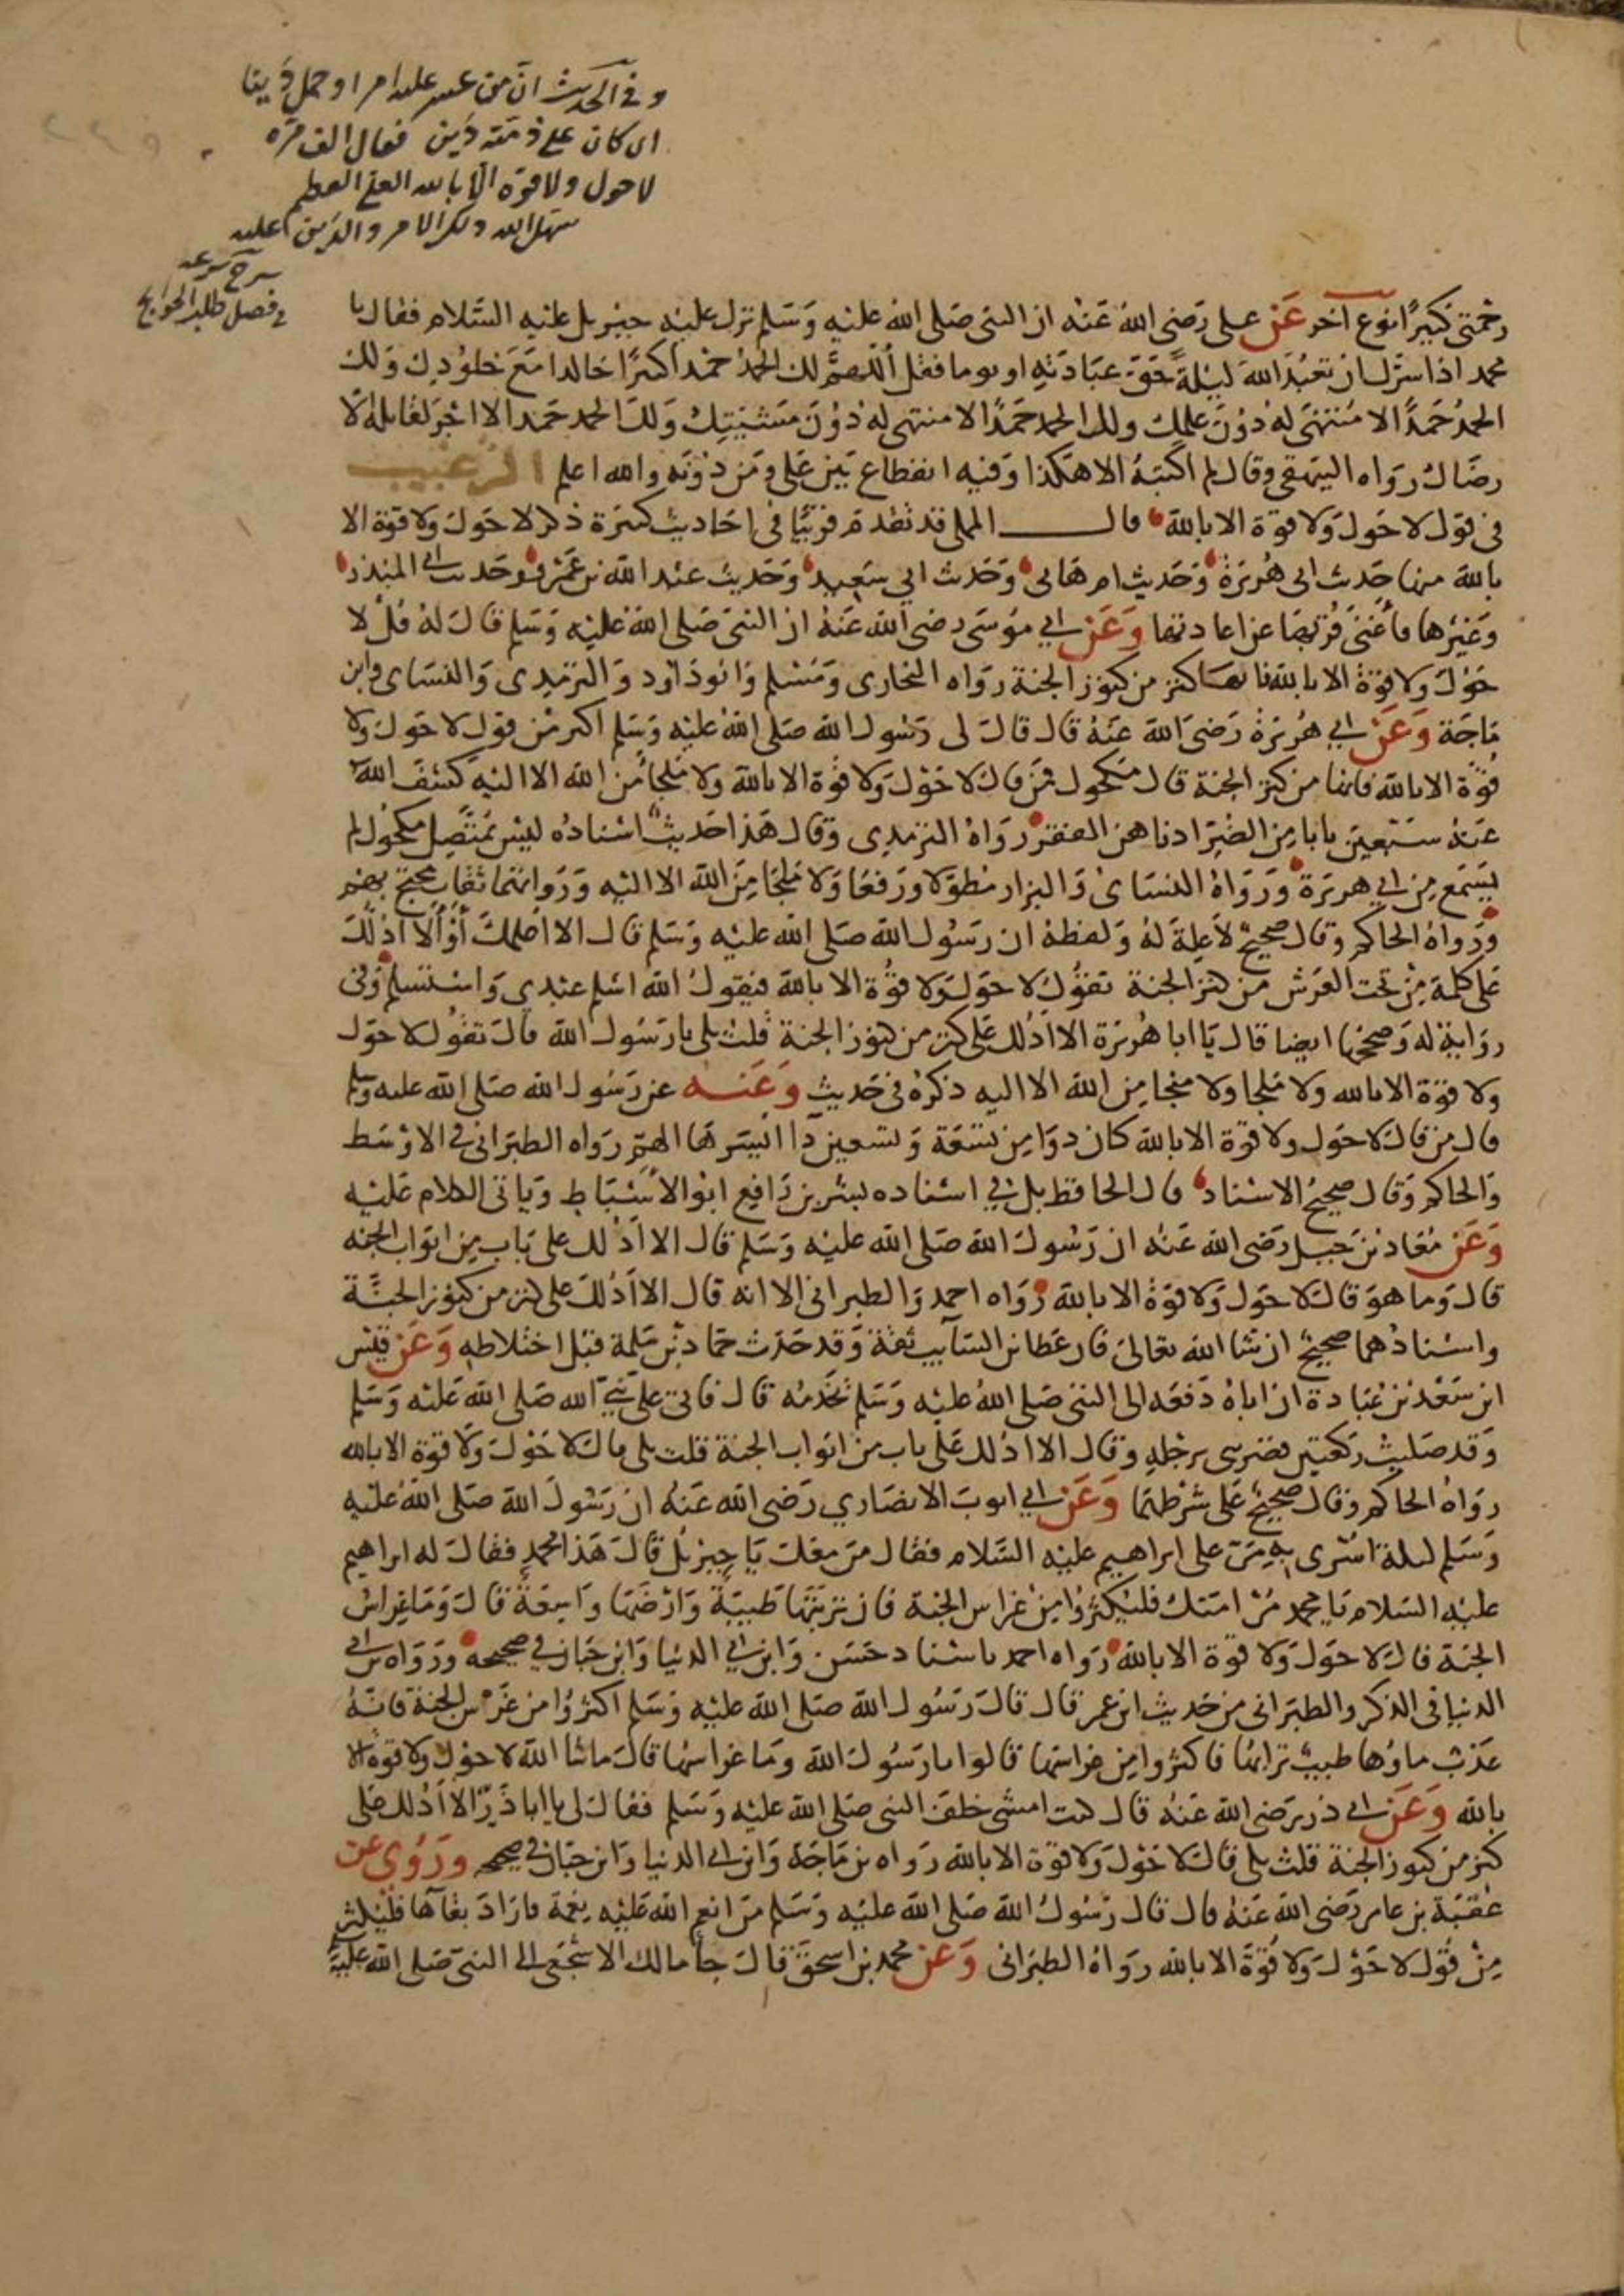 وفي الحديث ان من عسر عليه امر او حمل دينا
اي كان على ذمته دين فقال الف مرة
لا حول ولا قوة الا بالله العلي العظيم
سهل الله ذلك الامر والدين عليه
شرح شرعه
في فصل طلب الحوايج
رحمتي كبيرا نوع آخر عن علي رضي الله عنه ان النبي صلى الله عليه وسلم نزل عليه جبريل عليه السلام فقال يا
محمد اذا سرك ان تعبد الله ليلة حق عبادته او يوما فقل اللهم لك الحمد حمدا كثيرا خالدا مع خلودك ولك
الحمد حمدا لا منتهى له دون علمك ولك الحمد حمدا لا منتهى له دون مشيتك ولك الحمد حمدا لا اجر لقائله الا
رضاك رواه البيهقي وقال لم اكتبه الا هكذا وفيه انقطاع بين علي ومن دونه والله اعلم الترغيب
في قول لا حول ولا قوة الا بالله قال المملي قد تقدم قريبا في احاديث كثيرة ذكر لا حول ولا قوة الا
بالله منها حديث ابي هريرة وحديث ام هاني وحديث ابي سعيد وحديث عبد الله بن عمرو وحديث ابي المنذر
وغيرها فاغنى قربها عن اعادتها وعن ابي موسى رضي الله عنه ان النبي صلى الله عليه وسلم قال له قل لا
حول ولا قوة الا بالله فانها كنز من كنوز الجنة رواه البخاري ومسلم وابو داود والترمذي والنساي وابن
ماجة وعن ابي هريرة رضي الله عنه قال قال لي رسول الله صلى الله عليه وسلم اكثر من قول لا حول ولا
قوة الا بالله فانها من كنز الجنة قال مكحول فمن قال لا حول ولا قوة الا بالله ولا ملجأ من الله الا اليه كشف الله
عنه سبعين بابا من الضر ادناهن الفقر رواه الترمذي وقال هذا حديث اسناده ليس بمتصل مكحول لم
يسمع من ابي هريرة ورواه النساي والبزار مطولا ورفعا ولا ملجا من الله الا اليه ورواتهما ثقات محتج بهم
ورواه الحاكم وقال صحيح لا علة له ولفظه ان رسول الله صلى الله عليه وسلم قال الا اعلمك أو ألا ادلك
على كلمة من تحت العرش من كنز الجنة تقول لا حول ولا قوة الا بالله فيقول الله اسلم عبدي واستسلم وفي
رواية له وصححها ايضا قال يا ابا هريرة الا ادلك على كنز من كنوز الجنة قلت بلى يا رسول الله قال تقول لا حول
ولا قوة الا بالله ولا ملجا ولا منجا من الله الا اليه ذكره في حديث وعنه عن رسول الله صلى الله عليه وسلم
قال من قال لا حول ولا قوة الا بالله كان دوا من تسعة وتسعين داا ايسرها الهم رواه الطبراني في الاوسط
والحاكم وقال صحيح الاسناد قال الحافظ بل في اسناده بشر بن رافع ابو الاسباط وياتي الكلام عليه
وعن معاذ بن جبل رضي الله عنه ان رسول الله صلى الله عليه وسلم قال الا ادلك على باب من ابواب الجنه
قال وما هو قال لا حول ولا قوة الا بالله رواه احمد والطبراني الا انه قال الا ادلك على كنز من كنوز الجنة
واسنادهما صحيح ان شا الله تعالى فان عطا بن السايب ثقة وقد حدث حماد بن سلمة قبل اختلاطه وعن قيس
ابن سعد بن عبادة ان اباه دفعه الى النبي صلى الله عليه وسلم يخدمه قال فاتى علي نبي الله صلى الله عليه وسلم
وقد صليت ركعتين فضربني برجله وقال الا ادلك على باب من ابواب الجنة قلت بلى قال لا حول ولا قوة الا بالله
رواه الحاكم وقال صحيح على شرطهما وعن ابي ايوب الانصاري رضي الله عنه ان رسول الله صلى الله عليه
وسلم ليلة اسري به مر على ابراهيم عليه السلام فقال من معك يا جبريل قال هذا محمد فقال له ابراهيم
عليه السلام يا محمد مر امتك فليكثروا من غراس الجنة فان تربتها طيبة وارضها واسعة قال وما غراس
الجنة قال لا حول ولا قوة الا بالله رواه احمد باسناد حسن وابن ابي الدنيا وابن حبان في صحيحه ورواه ابن ابي
الدنيا في الذكر والطبراني من حديث ابن عمر قال قال رسول الله صلى الله عليه وسلم اكثروا من غرس الجنة فانه
عذب ماؤها طيب ترابها فاكثروا من غراسها قالوا يا رسول الله وما غراسها قال ما شا الله لا حول ولا قوة الا
بالله وعن ابي ذر رضي الله عنه قال كنت امشي خلف النبي صلى الله عليه وسلم فقال لي يا ابا ذر الا ادلك على
كنز من كنوز الجنة قلت بلى قال لا حول ولا قوة الا بالله رواه بن ماجة وابن ابي الدنيا وابن حبان في صحيحه وروي عن
عقبة بن عامر رضي الله عنه قال قال رسول الله صلى الله عليه وسلم من انعم الله عليه نعمة فاراد بقاها فليكثر
من قول لا حول ولا قوة الا بالله رواه الطبراني وعن محمد بن اسحق قال جا مالك الاشجعي الى النبي صلى الله عليه